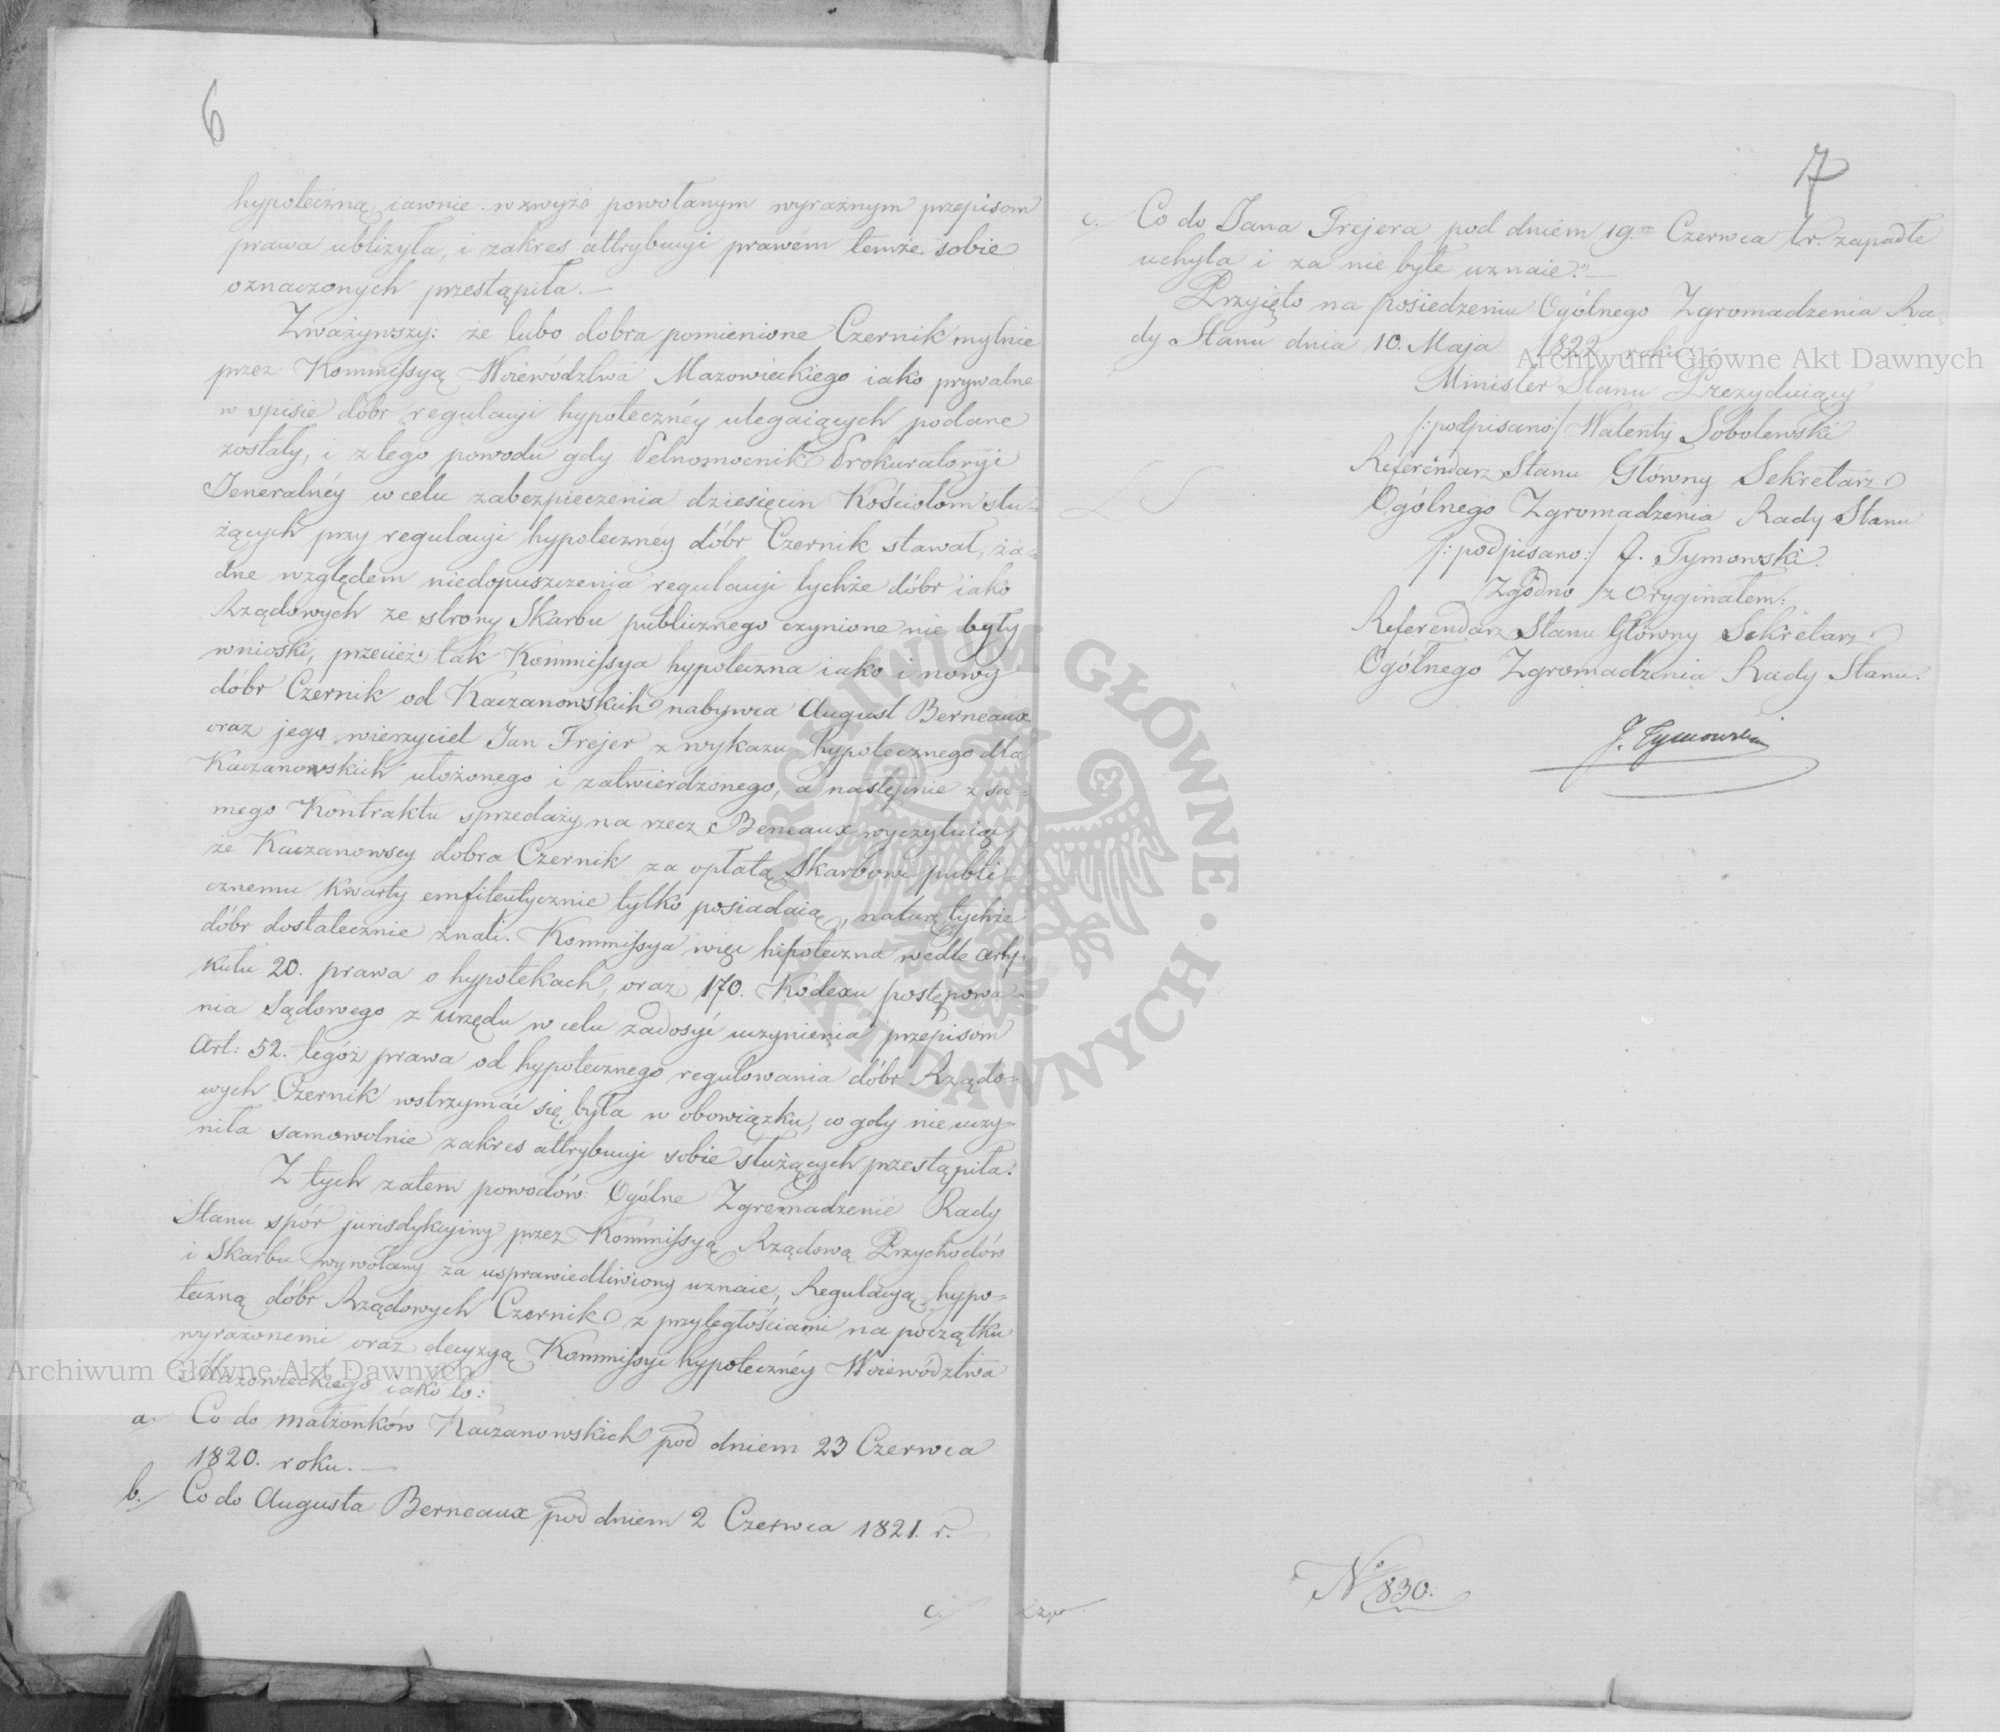 6
hypoteczną iawnie wzwyżo powołanym wyraźnym przepisom
prawa ubliżyła, i zakres attrybucyi prawém temże sobie
oznaczonych przestąpiła.—
Zważywszy: że lubo dobra pomienione Czernik mylnie
przez Kommissyą Woiewództwa Mazowieckiego iako prywatne
w spisie dóbr regulacyi hypotecznéy ulegaiących podane
zostały, i z tego powodu gdy Pełnomocnik Prokuratoryi
Jeneralnéy w celu zabezpieczenia dziesięcin Kościołom słu-
żących przy regulacyi hypotecznéy dóbr Czernik stawał, ża-
dne względem niedopuszczenia regulacyi tychże dóbr iako
Rządowych ze strony Skarbu publicznego czynione nie były
wnioski, przecież tak Kommissya hypoteczna iako i nowy
dóbr Czernik od Kaczanowskich nabywca August Berneaux
oraz jego wierzyciel Jan Frejer z wykazu hypotecznego dla
Kaczanowskich ułożonego i zatwierdzonego, a następnie z sa-
mego Kontraktu sprzedaży na rzecz Berneaux wyczytuiąc,
że Kaczanowscy dobra Czernik za opłatą Skarbowi publi-
cznemu Kwarty emfiteutycznie tylko posiadaią, naturę tychże
dóbr dostatecznie znali. Kommissya więc hipoteczna wedle arty-
kułu 20. prawa o hypotekach, oraz 170. Kodexu postępowa-
nia Sądowego z urzędu w celu zadosyć uczynienia przepisom
Art: 52. tegóż prawa od hypotecznego regulowania dóbr Rządo-
wych Czernik wstrzymać się była w obowiązku, co gdy nie uczy-
niła samowolnie zakres attrybucyi sobie służących przestąpiła.
Z tych zatem powodów: Ogólne Zgromadzenie Rady
Stanu spór jurisdykcyiny przez Kommissyą Rządową Przychodów
i Skarbu wywołany za usprawiedliwiony uznaie, Regulacyą hypo-
teczną dóbr Rządowych Czernik z przyległościami na początku
wyrażonemi oraz decyzyą Kommissyi hypotecznéy Woiewództwa
Mazowieckiego iako to:
a. Co do małżonków Kaczanowskich pod dniem 23 Czerwca
1820. roku.—
b. Co do Augusta Berneaux pod dniem 2 Czerwca 1821. r.
c.
7
c. Co do Jana Frejera pod dniem 19. Czerwca t.r. zapadłe
uchyla i za nie byłe uznaie."—
Przyięto na posiedzeniu Ogólnego Zgromadzenia Ra-
dy Stanu dnia 10. Maja 1822 roku
Minister Stanu Prezyduiący
/:podpisano:/ Walenty Sobolewski
Referendarz Stanu Główny Sekretarz
Ogólnego Zgromadzenia Rady Stanu
/:podpisano:/ J. Tymowski.
Zgodno z Oryginałem:
Referendarz Stanu Główny Sekretarz
Ogólnego Zgromadzenia Rady Stanu.
J. Tymowski
Nº 830.
Archiwum Główne Akt Dawnych
Archiwum Główne Akt Dawnych
ARCHIWUM GŁÓWNE · AKT DAWNYCH ·